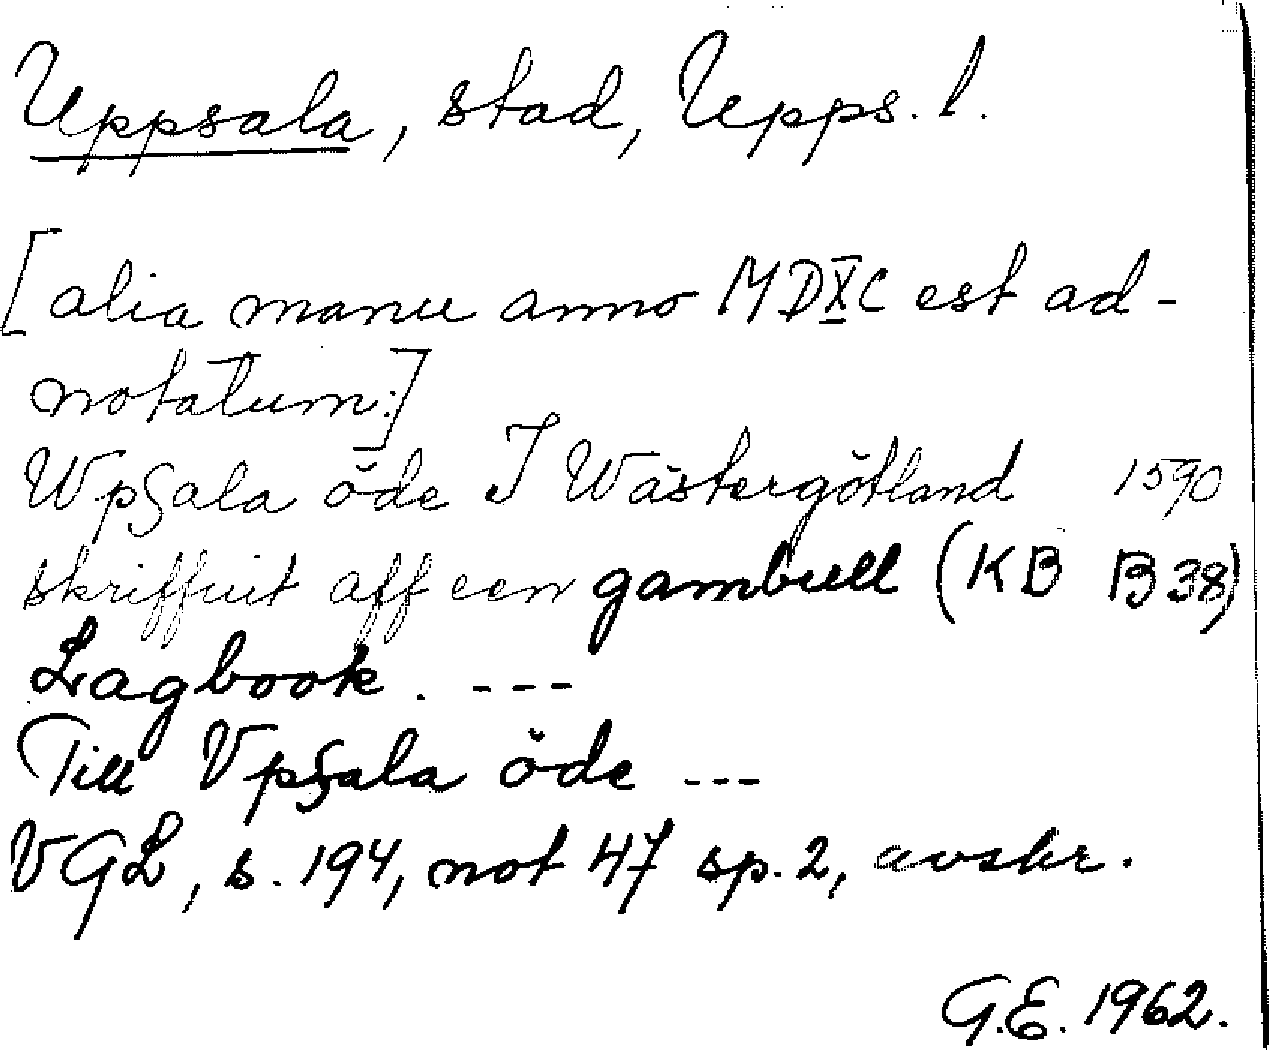 Uppsala, stad, Upps. l.
[alia manu anno MDXC est ad-
notatum:]
Wpſala öde I Wästergötland 1590
skriffuit aff een gambull (KB B 38)
Lagbook. ---
Till Vpſala öde ---
VGL, s. 194, not 47 sp. 2, avskr.
G.E. 1962.